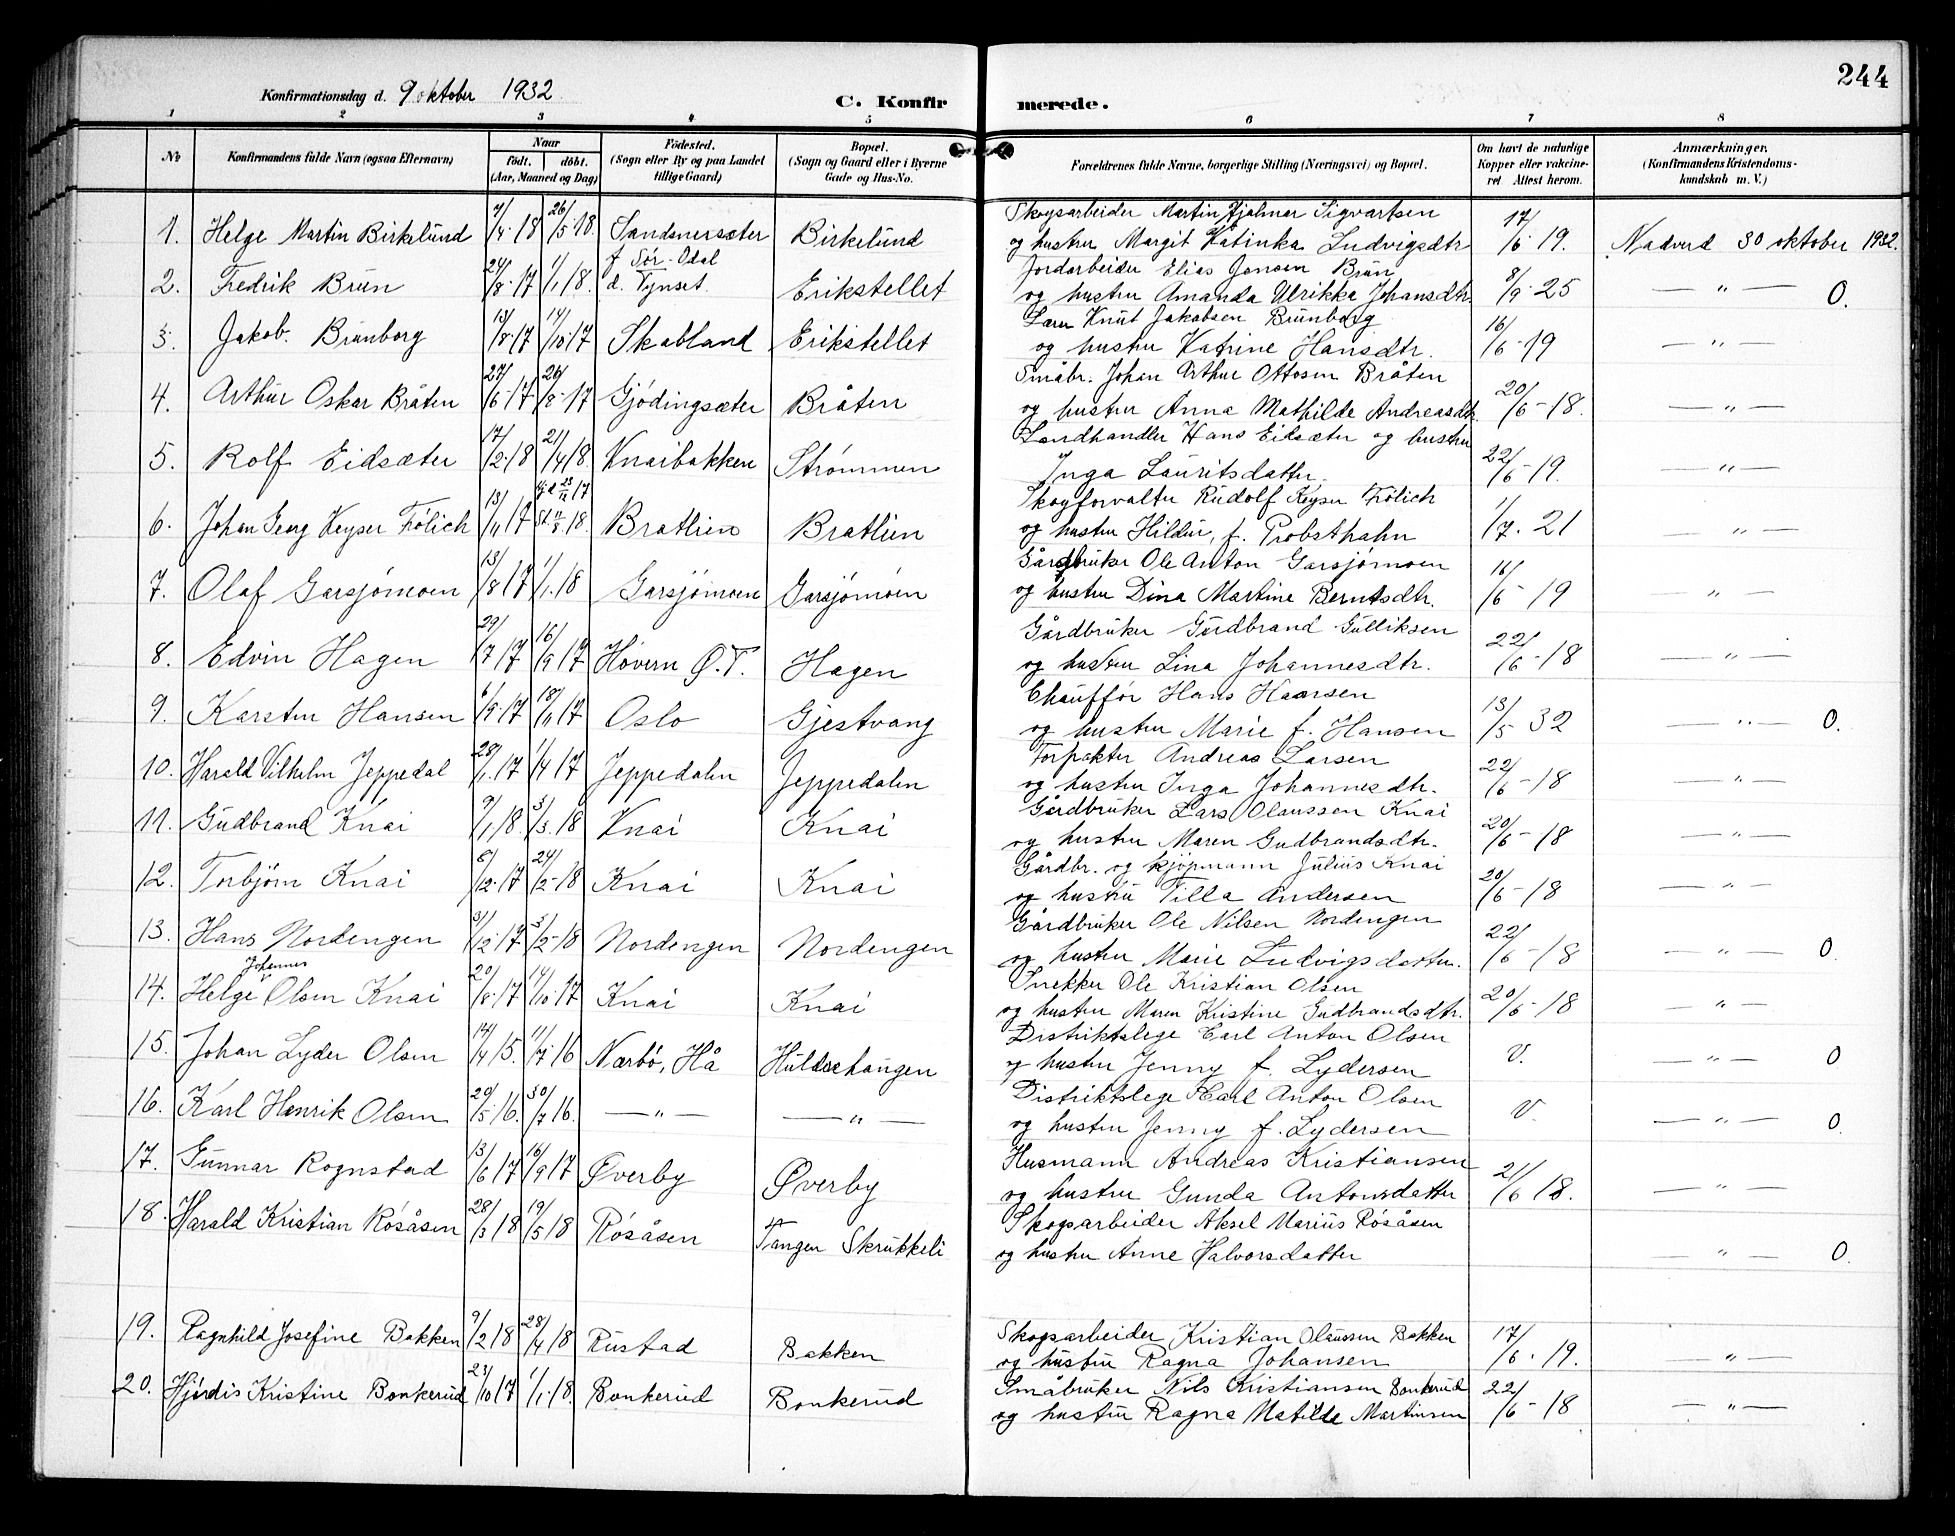 244
Konfirmationsdag d. 9 oktober 1932
C. Konfirmerede.
1 2 3 4 5 6 7 8
No
Konfirmandens fulde Navn (ogsaa Efternavn)
Naar
født. døbt.
(Aar, Maaned og Dag)
Fødested.
(Sogn eller By og paa Landet
tillige Gaard)
Bopæl.
(Sogn og Gaard eller i Byerne
Gade og Hus-No.
Forældrenes fulde Navne, borgerlige Stilling (Næringsvei) og Bopæl.
Om havt de naturlige
Kopper eller vakcine-
ret Attest herom.
Anmærkninger.
(Konfirmandens Kristendoms-
kundskab m. V.)
1. Helge Martin Birkelund 7/4-18 26/5-18. Sandsnersæter Birkelund Skogsarbeider Martin Hjalmar Sigvartsen
og hustru Margit Katinka Ludvigsdtr 17/6-19. Nadverd 30 oktober 1932.
2. Fredrik Brun 24/8-17 1/1 18. f Sør-Odal
d. Tynset. Erikstellet Jordarbeider Elias Jensen Brun
og hustru Amanda Ulrikka Johansdtr. 8/9-25 — " — O.
3. Jakob. Brunborg 13/8-17 14/10-17 Skabland Erikstellet Lærer Knut Jakobsen Brunborg
og hustru Katrine Hansdtr. 16/6-19 — " —
4. Arthur Oskar Bråten 27/6-17 26/8-17 Gjödingsæter Bråten Småbr. Johan Arthur Ottosen Bråten
og hustru Anna Mathilde Andreasdtr. 20/6-18. — " —
5. Rolf Eidsæter 17/2-18 21/4 18. Knaibakken Strømmen Landhandler Hans Eidsæter og hustru
Inga Lauritsdatter. 22/6-19. — " —
6. Johan Georg Keyser Frölich 13/11 17 Hj.d 23/12 17
St. 11/8 18. Bratlien Bratlien Skogforvalter Rudolf Keyser Frölich
og hustru Hildur, f. Probsthahn 1/7-21 — " —
7. Olaf Garsjømoen 13/8 17 1/1-18 Garsjømoen Garsjømoen Gårdbruker Ole Anton Garsjømoen
og hustru Dina Martine Berntsdtr. 16/6-19 — " —
8. Edvin Hagen 29/7 17 16/9 17 Hovern Ø.T. Hagen Gårdbruker Gudbrand Gulliksen
og hustru Lina Johannesdtr. 22/6-18 — " —
9. Karsten Hansen 6/9-17 18/11 17 Oslo Gjestvang Chauffør Hans Hansen
og hustru Marie f. Hansen 13/5 32 — " — O.
10. Harald Vilhelm Jeppedal 28/1-17 1/4 17 Jeppedalen Jeppedalen Forpakter Andreas Larsen
og hustru Inga Johannesdtr. 22/6-18 — " —
11. Gudbrand Knai 9/1 18. 3/3-18 Knai Knai Gårdbruker Lars Olaussen Knai
og hustru Maren Gudbrandsdtr. 20/6-18 — " —
12. Torbjørn Knai 8/12-17 24/2-18 Knai Knai Gårdbr. og kjøpmann Julius Knai
og hustru Tilla Andersen 20/6-18 — " —
13. Hans Nordengen 3/12-17 3/2-18 Nordengen Nordengen Gårdbruker Ole Nilsen Nordengen
og hustru Marie Ludvigsdatter. 22/6-18 — " — O.
14. Helge Johannes Olsen Knai 20/8-17 14/10-17 Knai Knai Snekker Ole Kristian Olsen
og hustru Maren Kristine Gudbrandsdtr. 20/6-18 — " —
15. Johan Lyder Olsen 14/4 15. 11/7-16 Nærbö, Hå Huldrehaugen Distriktslege Carl Anton Olsen
og hustru Jenny f. Lydersen V. — " — O
16. Karl Henrik Olsen 29/5 16. 30/7 16. — " — — " — Distriktslege Carl Anton Olsen
og hustru Jenny f. Lydersen V. — " — O.
17. Gunnar Rognstad 13/6 17 16/9 17 Øverby Øverby Husmann Andreas Kristiansen
og hustru Gunda Antonsdatter 21/6 18. — " —
18. Harald Kristian Rösåsen 28/3 18 19/5 18 Rösåsen Tangen Skrukkeli Skogsarbeider Aksel Marius Rösåsen
og hustru Anne Halvorsdatter — " — O.
19. Ragnhild Josefine Bakken 9/2 18 28/4 18 Rustad Bakken Skogsarbeider Kristian Olaussen Bakken
og hustru Ragna Johansen 17/6-19. — " —
20. Hjördis Kristine Bonkerud 23/10 17 1/1-18. Bonkerud Bonkerud Småbruker Nils Kristiansen Bonkerud
og hustru Ragna Matilde Martinsen 22/6-18 — " —